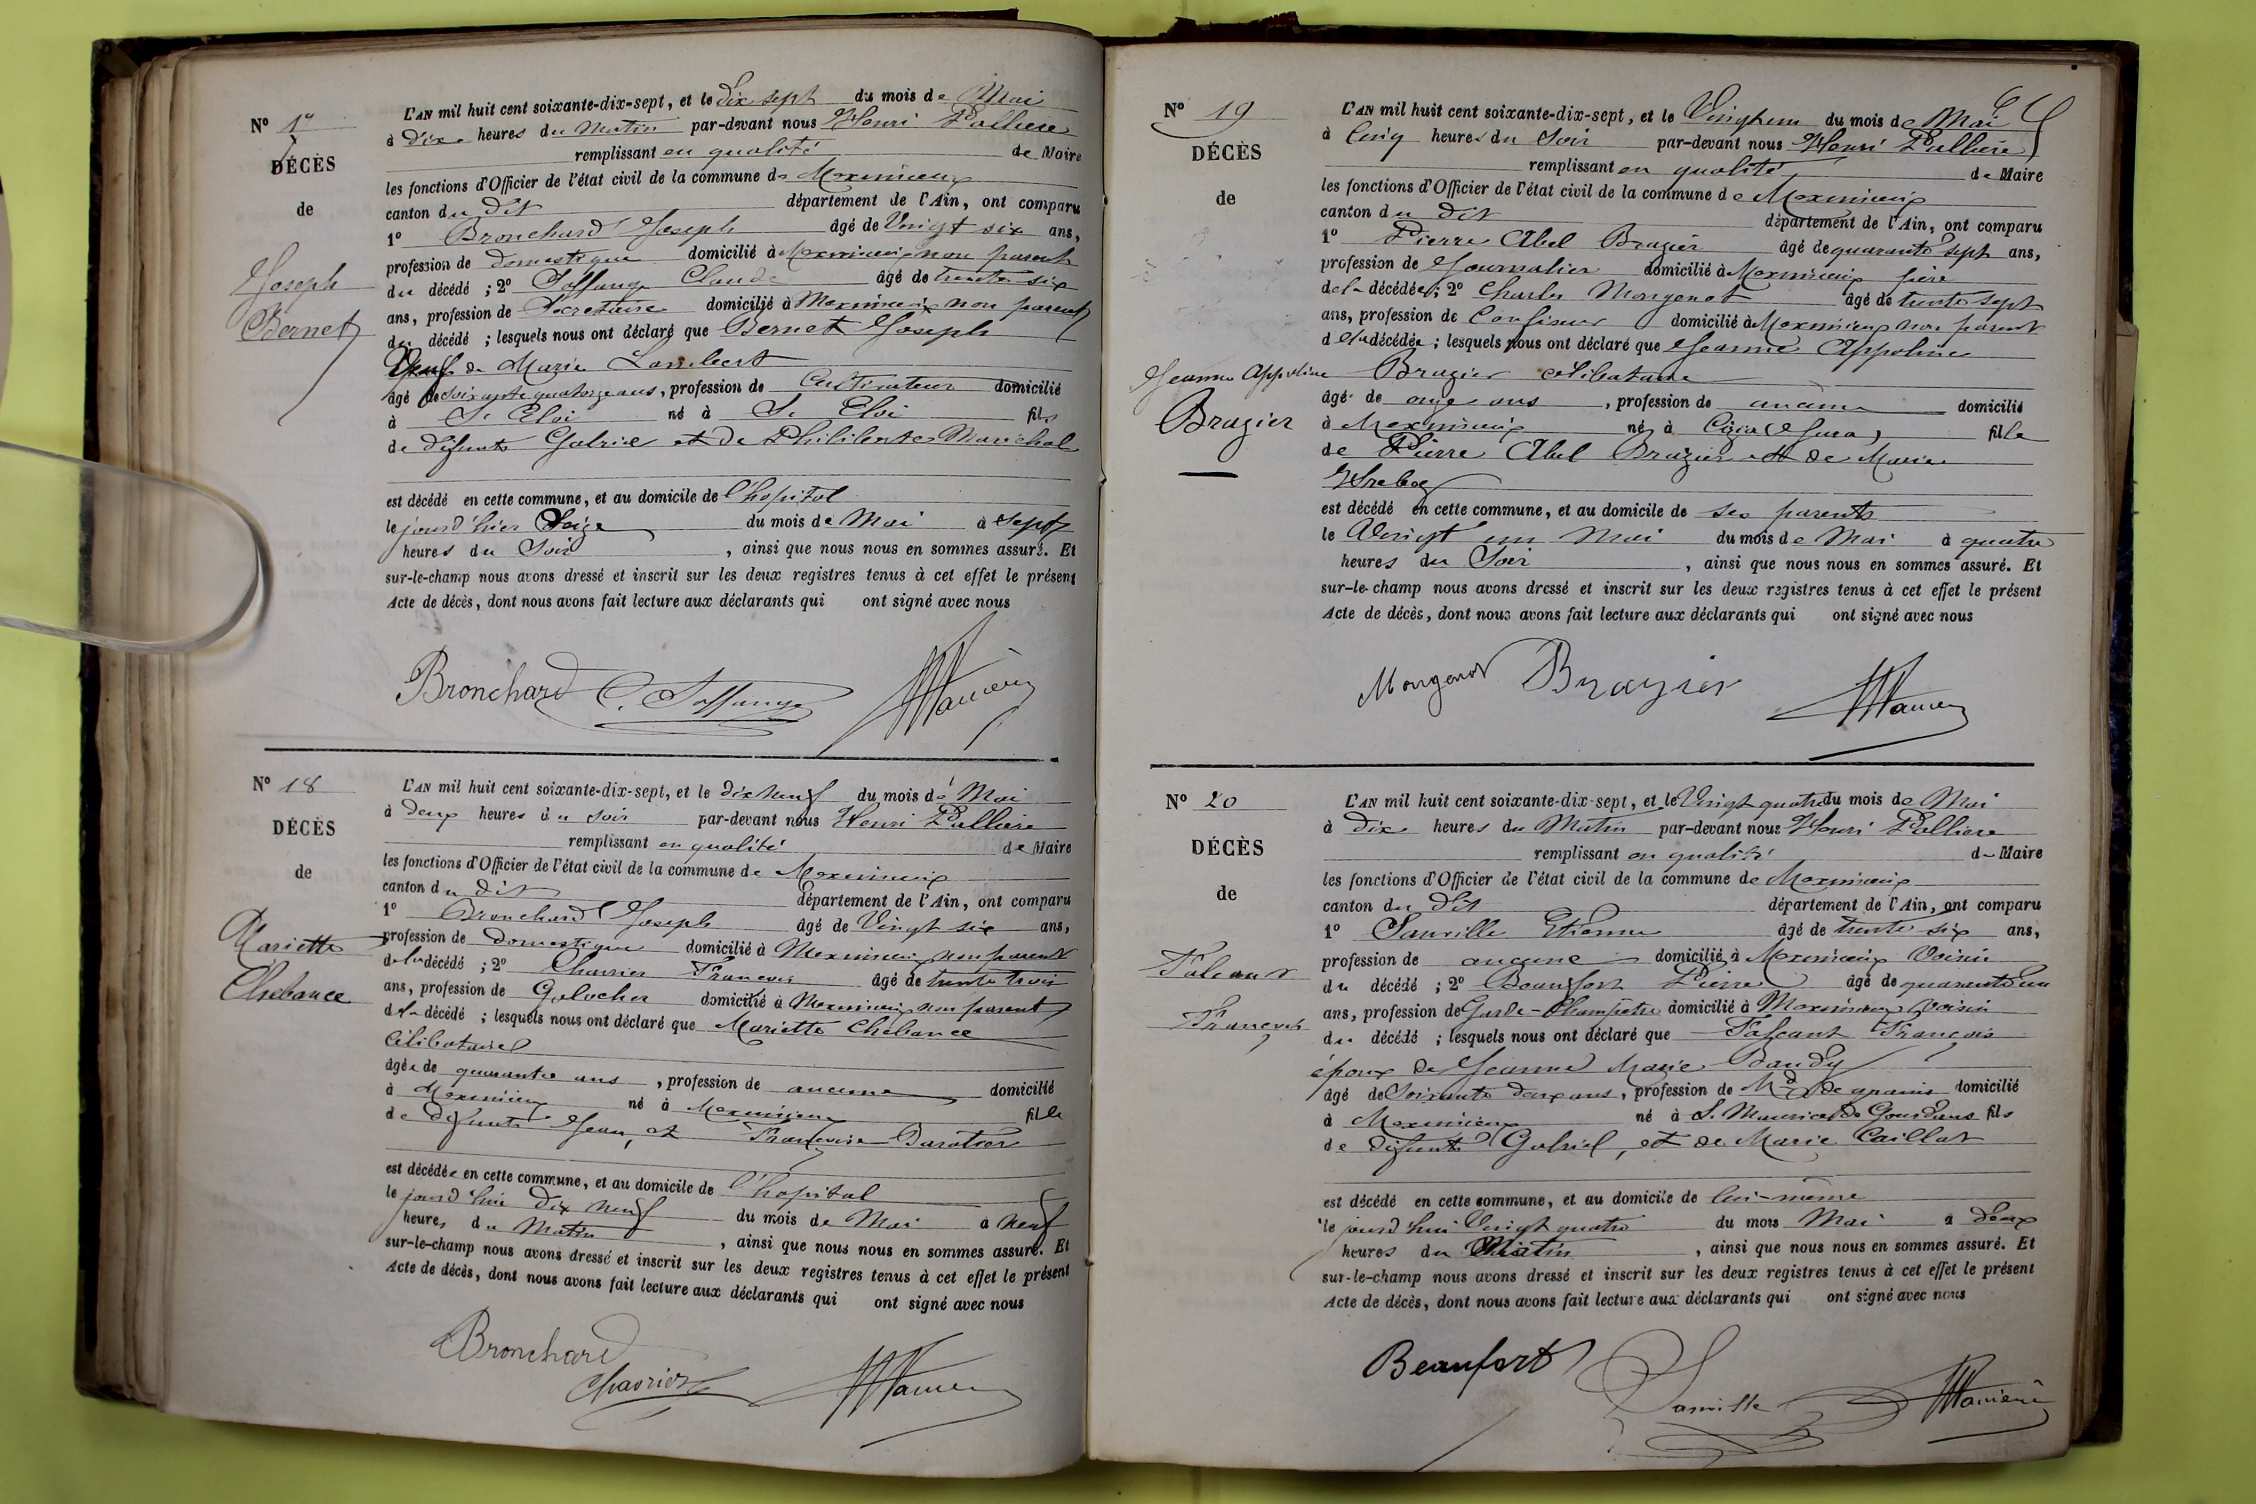 N° 17
DÉCÈS
de
Joseph
Bernet
L'AN mil huit cent soixante-dix-sept, et le dix sept du mois de Mai
à dix heures du Matin par-devant nous Henri Pallière
remplissant en qualité de Maire
les fonctions d'Officier de l'état civil de la commune de Meximieux
canton du dit département de l'Ain, ont comparu
1° Bronchard Joseph âgé de Vingt six ans,
profession de domestique domicilié à Meximieux non parent
du décédé ; 2° Claude âgé de trente six
ans, profession de Secretaire domicilié à Meximieux non parent
du décédé ; lesquels nous ont déclaré que Bernet Joseph
Veuf de Marie Lambert
âgé de soixante quatorze ans, profession de Cultivateur domicilié
à St Eloi né à St Eloi fils
de défunts Gabriel et de Philiberte Marechal
est décédé en cette commune, et au domicile de l'hopital
le jourd'hier Seize du mois de Mai à Sept
heures du Soir , ainsi que nous nous en sommes assuré. Et
sur-le-champ nous avons dressé et inscrit sur les deux registres tenus à cet effet le présent
Acte de décès, dont nous avons fait lecture aux déclarants qui ont signé avec nous
Bronchard
N° 18
DÉCÈS
de
Mariette
Chebance
L'AN mil huit cent soixante-dix-sept, et le dix neuf du mois de Mai
à deux heures du soir par-devant nous Henri Pallière
remplissant en qualité de Maire
les fonctions d'Officier de l'état civil de la commune de Meximieux
canton du dit département de l'Ain, ont comparu
1° Bronchard Joseph âgé de Vingt six ans,
profession de domestique domicilié à Meximieux non parent
de la décédé ; 2° Charrier François âgé de trente trois
ans, profession de Galocher domicilié à Meximieux non parent
de la décédé ; lesquels nous ont déclaré que Mariette Chebance
Célibataire
âgée de quarante ans , profession de aucune domicilié
à Meximieux né à Meximieux fille
de défunts Jean, et Françoise
est décédée en cette commune, et au domicile de l'hopital
le jourd'hui dix neuf du mois de Mai à neuf
heures du Matin , ainsi que nous nous en sommes assuré. Et
sur-le-champ nous avons dressé et inscrit sur les deux registres tenus à cet effet le présent
Acte de décès, dont nous avons fait lecture aux déclarants qui ont signé avec nous
Bronchard
Charrier
N° 19
DÉCÈS
de
Jeanne Appoline
Brazier
L'AN mil huit cent soixante-dix-sept, et le Vingt un du mois de Mai
à Cinq heures du Soir par-devant nous Henri Pallière
remplissant en qualité de Maire
les fonctions d'Officier de l'état civil de la commune de Meximieux
canton du dit département de l'Ain, ont comparu
1° Pierre Abel Brazier âgé de quarante sept ans,
profession de Journalier domicilié à Meximieux père
de la décédée ; 2° Charles Mongenot âgé de trente sept
ans, profession de Confiseur domicilié à Meximieux non parent
de la décédée ; lesquels nous ont déclaré que Jeanne Appoline
Brazier célibataire
âgé de onze ans , profession de aucune domicilié
à Meximieux né à (Jura) fille
de Pierre Abel Brazier et de Marie
est décédé en cette commune, et au domicile de ses parents
le Vingt un Mai du mois de Mai à quatre
heures du Soir , ainsi que nous nous en sommes assuré. Et
sur-le-champ nous avons dressé et inscrit sur les deux registres tenus à cet effet le présent
Acte de décès, dont nous avons fait lecture aux déclarants qui ont signé avec nous
Mongenot Brazier
N° 20
DÉCÈS
de
Falcant
François
L'AN mil huit cent soixante-dix-sept, et le Vingt quatre du mois de Mai
à dix heures du Matin par-devant nous Henri Pallière
remplissant en qualité de Maire
les fonctions d'Officier de l'état civil de la commune de Meximieux
canton du dit département de l'Ain, ont comparu
1° Janville Etienne âgé de trente six ans,
profession de aucune domicilié à Meximieux Voisin
du décédé ; 2° Beaufort Pierre âgé de quarante un
ans, profession de Garde-Champêtre domicilié à Meximieux voisin
du décédé ; lesquels nous ont déclaré que Falcant François
époux de Jeanne Marie Dandy
âgé de Soixante deux ans, profession de Md de grains domicilié
à Meximieux né à St Maurice de Gourdans fils
de défunts Gabriel, et de Marie Caillat
est décédé en cette commune, et au domicile de lui-même
le jourd'hui Vingt quatre du mois Mai à deux
heures du Matin , ainsi que nous nous en sommes assuré. Et
sur-le-champ nous avons dressé et inscrit sur les deux registres tenus à cet effet le présent
Acte de décès, dont nous avons fait lecture aux déclarants qui ont signé avec nous
Beaufort Janville